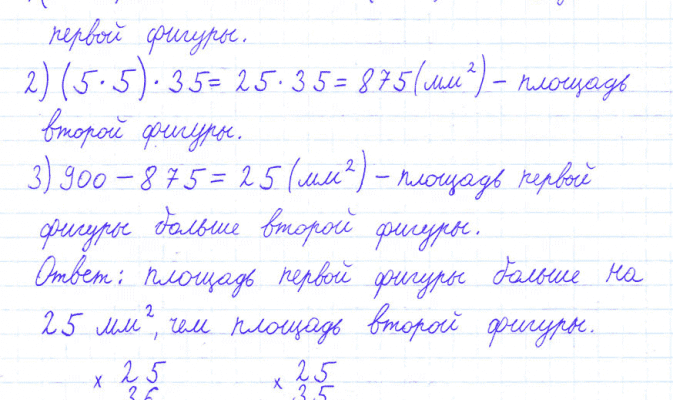 первой фигуры.
2) (5·5)·35= 25·35= 875(мм²) – площадь
второй фигуры.
3) 900 – 875 = 25 (мм²) – площадь первой
фигуры больше второй фигуры.
Ответ: площадь первой фигуры больше на
25 мм², чем площадь второй фигуры.
× 25 × 25
36 35